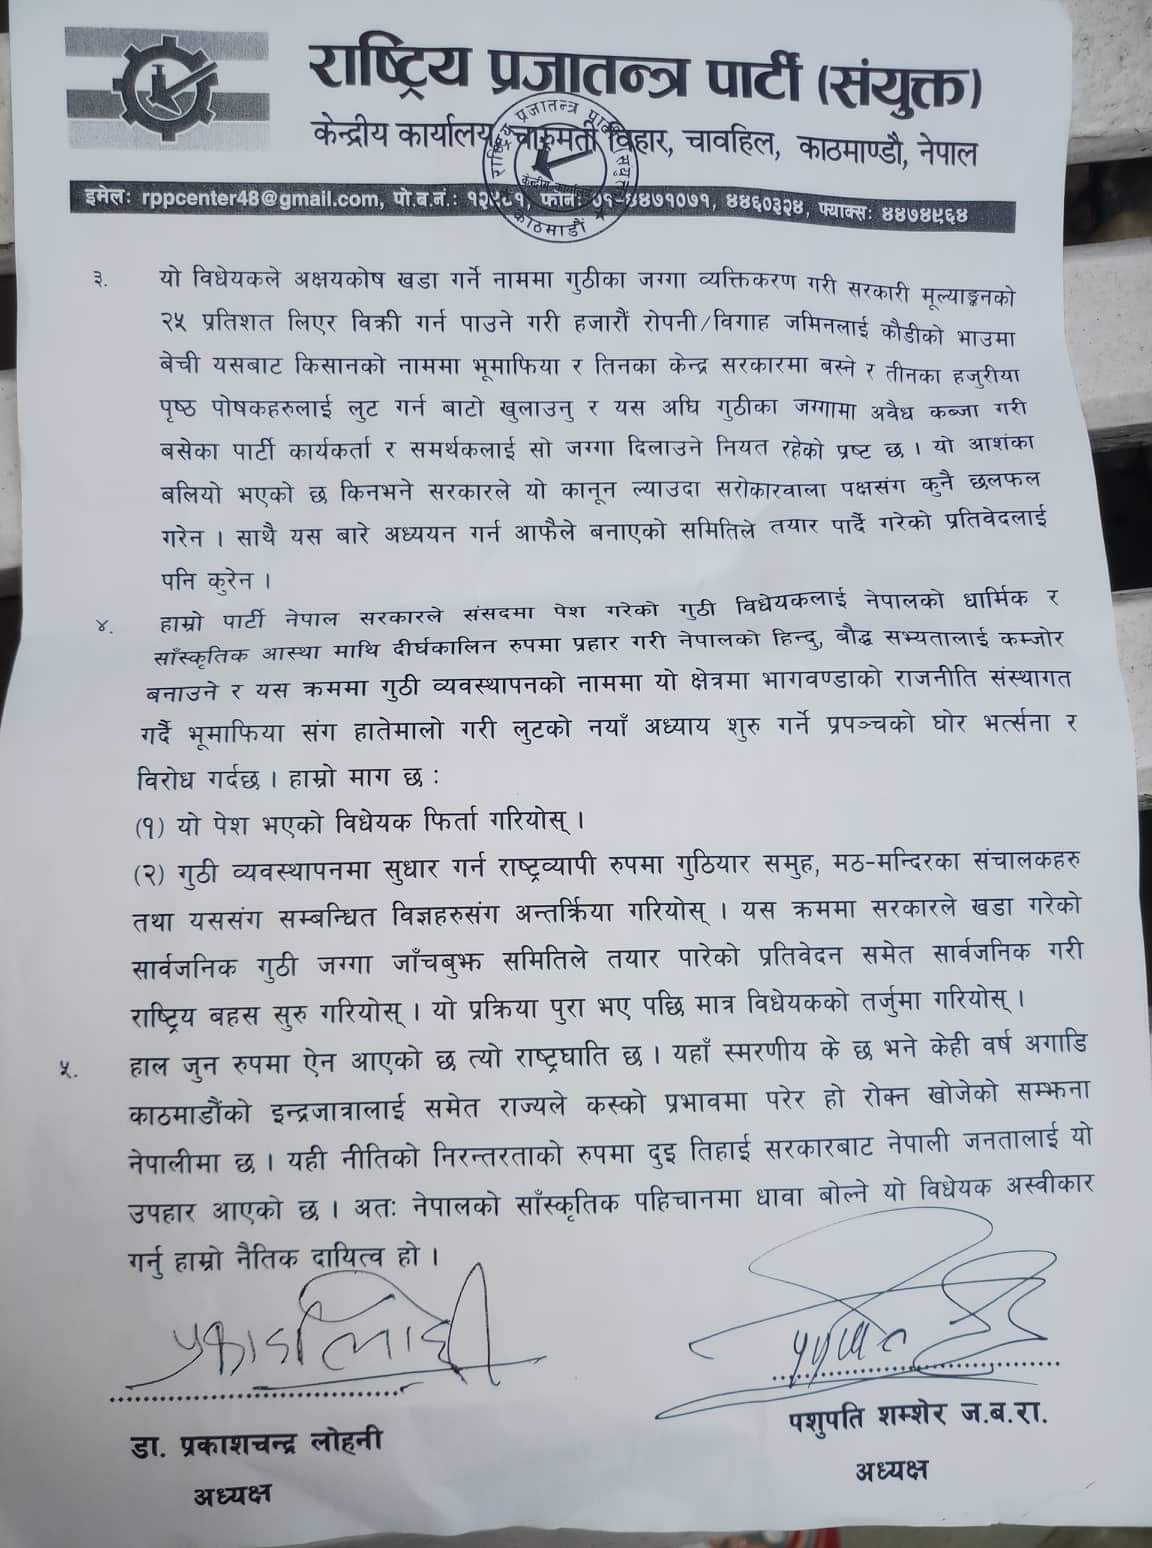 राष्ट्रिय प्रजातन्त्र पार्टी (संयुक्त)
केन्द्रीय कार्यालय, चारुमती विहार, चावहिल, काठमाण्डौ, नेपाल
इमेलः rppcenter48@gmail.com, पो.ब.नं.: १२९८१, फोनः ०१-४४७१०७१, ४४६०३२४, फ्याक्सः ४४७४९६४
राष्ट्रिय प्रजातन्त्र पार्टी संयुक्त
केन्द्रीय कार्यालय
काठमाडौं
३. यो विधेयकले अक्षयकोष खडा गर्ने नाममा गुठीका जग्गा व्यक्तिकरण गरी सरकारी मूल्याङ्कनको
२५ प्रतिशत लिएर विक्री गर्न पाउने गरी हजारौं रोपनी/विगाह जमिनलाई कौडीको भाउमा
बेची यसबाट किसानको नाममा भूमाफिया र तिनका केन्द्र सरकारमा बस्ने र तीनका हजुरीया
पृष्ठ पोषकहरुलाई लुट गर्न बाटो खुलाउनु र यस अघि गुठीका जग्गामा अवैध कब्जा गरी
बसेका पार्टी कार्यकर्ता र समर्थकलाई सो जग्गा दिलाउने नियत रहेको प्रष्ट छ । यो आशंका
बलियो भएको छ किनभने सरकारले यो कानून ल्याउदा सरोकारवाला पक्षसंग कुनै छलफल
गरेन । साथै यस बारे अध्ययन गर्न आफैले बनाएको समितिले तयार पार्दै गरेको प्रतिवेदलाई
पनि कुरेन ।
४. हाम्रो पार्टी नेपाल सरकारले संसदमा पेश गरेको गुठी विधेयकलाई नेपालको धार्मिक र
साँस्कृतिक आस्था माथि दीर्घकालिन रुपमा प्रहार गरी नेपालको हिन्दु, बौद्ध सभ्यतालाई कम्जोर
बनाउने र यस क्रममा गुठी व्यवस्थापनको नाममा यो क्षेत्रमा भागवण्डाको राजनीति संस्थागत
गर्दै भूमाफिया संग हातेमालो गरी लुटको नयाँ अध्याय शुरु गर्ने प्रपञ्चको घोर भर्त्सना र
विरोध गर्दछ । हाम्रो माग छ :
(१) यो पेश भएको विधेयक फिर्ता गरियोस् ।
(२) गुठी व्यवस्थापनमा सुधार गर्न राष्ट्रव्यापी रुपमा गुठियार समुह, मठ-मन्दिरका संचालकहरु
तथा यससंग सम्बन्धित विज्ञहरुसंग अन्तर्क्रिया गरियोस् । यस क्रममा सरकारले खडा गरेको
सार्वजनिक गुठी जग्गा जाँचबुझ समितिले तयार पारेको प्रतिवेदन समेत सार्वजनिक गरी
राष्ट्रिय बहस सुरु गरियोस् । यो प्रक्रिया पुरा भए पछि मात्र विधेयकको तर्जुमा गरियोस् ।
५. हाल जुन रुपमा ऐन आएको छ त्यो राष्ट्रघाति छ । यहाँ स्मरणीय के छ भने केही वर्ष अगाडि
काठमाडौंको इन्द्रजात्रालाई समेत राज्यले कस्को प्रभावमा परेर हो रोक्न खोजेको सम्झना
नेपालीमा छ । यही नीतिको निरन्तरताको रुपमा दुइ तिहाई सरकारबाट नेपाली जनतालाई यो
उपहार आएको छ । अतः नेपालको साँस्कृतिक पहिचानमा धावा बोल्ने यो विधेयक अस्वीकार
गर्नु हाम्रो नैतिक दायित्व हो ।
डा. प्रकाशचन्द्र लोहनी
अध्यक्ष
पशुपति शम्शेर ज.ब.रा.
अध्यक्ष